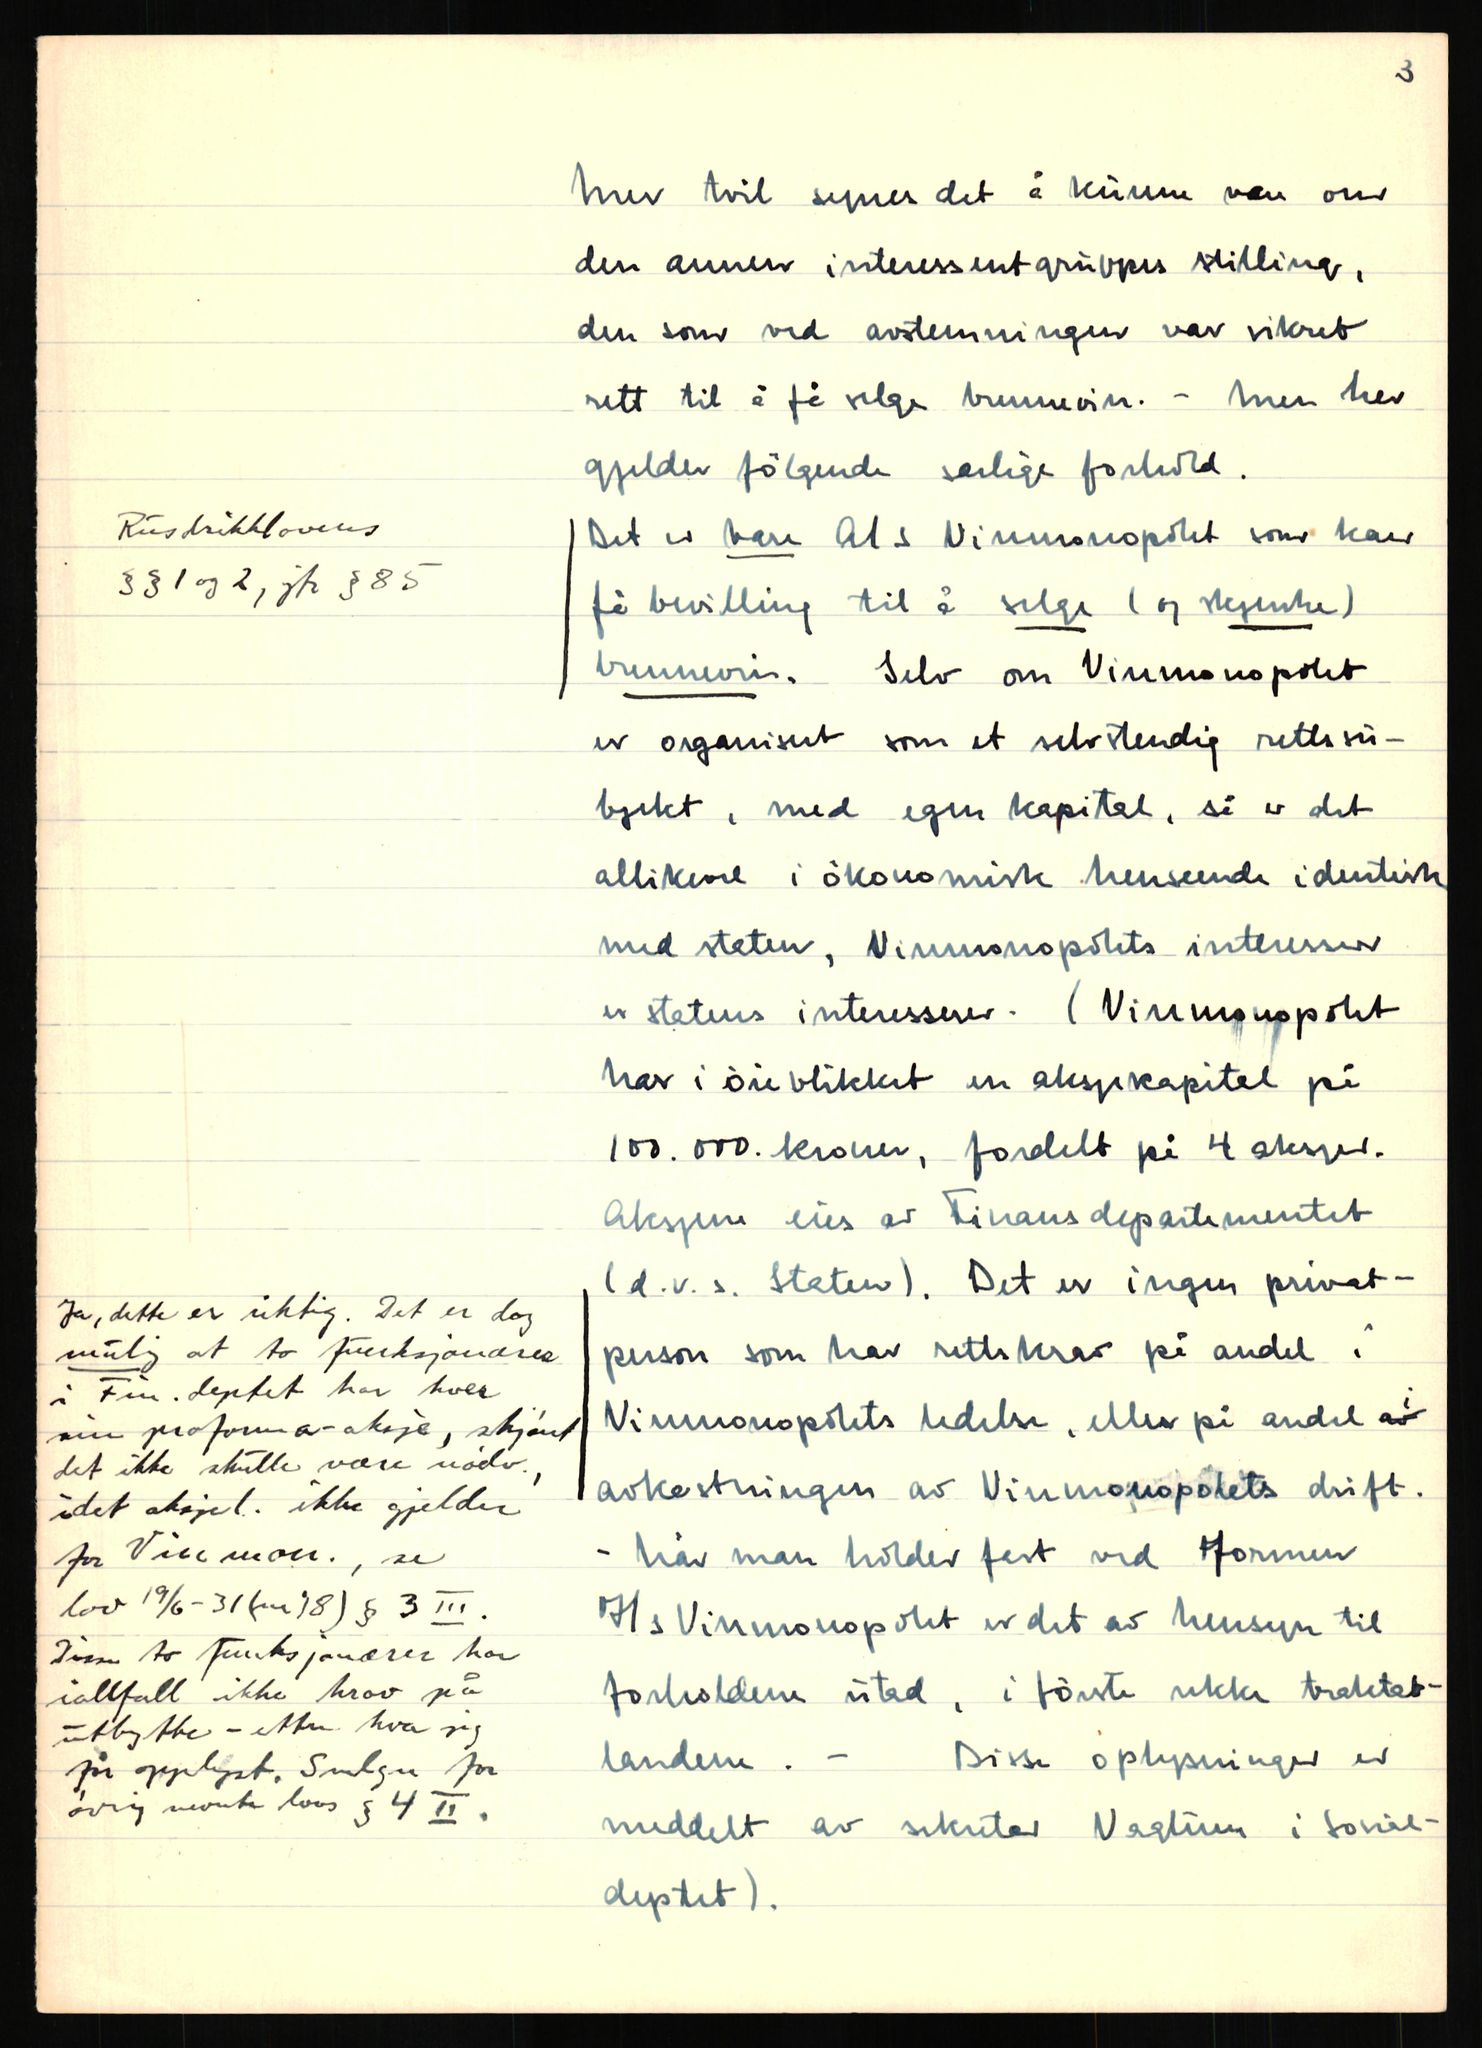 3
Mer tvil synes det å kunne være om
den annen interessentgruppes stilling,
den som ved avstemningen var sikret
rett til å få selge brennevin. - Men her
gjelder følgende særlige forhold.
Rusdrikklovens
§§ 1 og 2, jfr § 85
Det er bare A/s Vinmonopolet som kan
få bevilling til å selge (og skjenke)
brennevin. Selv om Vinmonopolet
er organisert som et selvstendig rettssu-
bjekt, med egen kapital, så er det
allikevel i økonomisk henseende identisk
med staten, Vinmonopolets interesser
er statens interesser. (Vinmonopolet
har i øieblikket en aksjekapital på
100.000. kroner, fordelt på 4 aksjer.
Aksjene eies av Finansdepartementet
(d.v.s. Staten). Det er ingen privat-
person som har rettskrav på andel i
Vinmonopolets ledelse, eller på andel i
avkastningen av Vinmonopolets drift.
- Når man holder fast ved formen
A/s Vinmonopolet er det av hensyn til
forholdene utad, i første rekke traktat-
landene. - Disse oplysninger er
meddelt av sekretær Vaglum i Sosial-
deptet).
Ja, dette er riktig. Det er dog
mulig at to funksjonærer
i Fin.deptet har hver
sin proforma-aksje, skjønt
det ikke skulle være nødv.,
idet aksjel. ikke gjelder
for Vinmon., se
lov 19/6-31 (nr 18) § 3 III.
Disse to funksjonærer har
iallfall ikke krav på
utbytte - etter hva jeg
får opplyst. Smlgn for
øvrig nevnte lovs § 4 II.